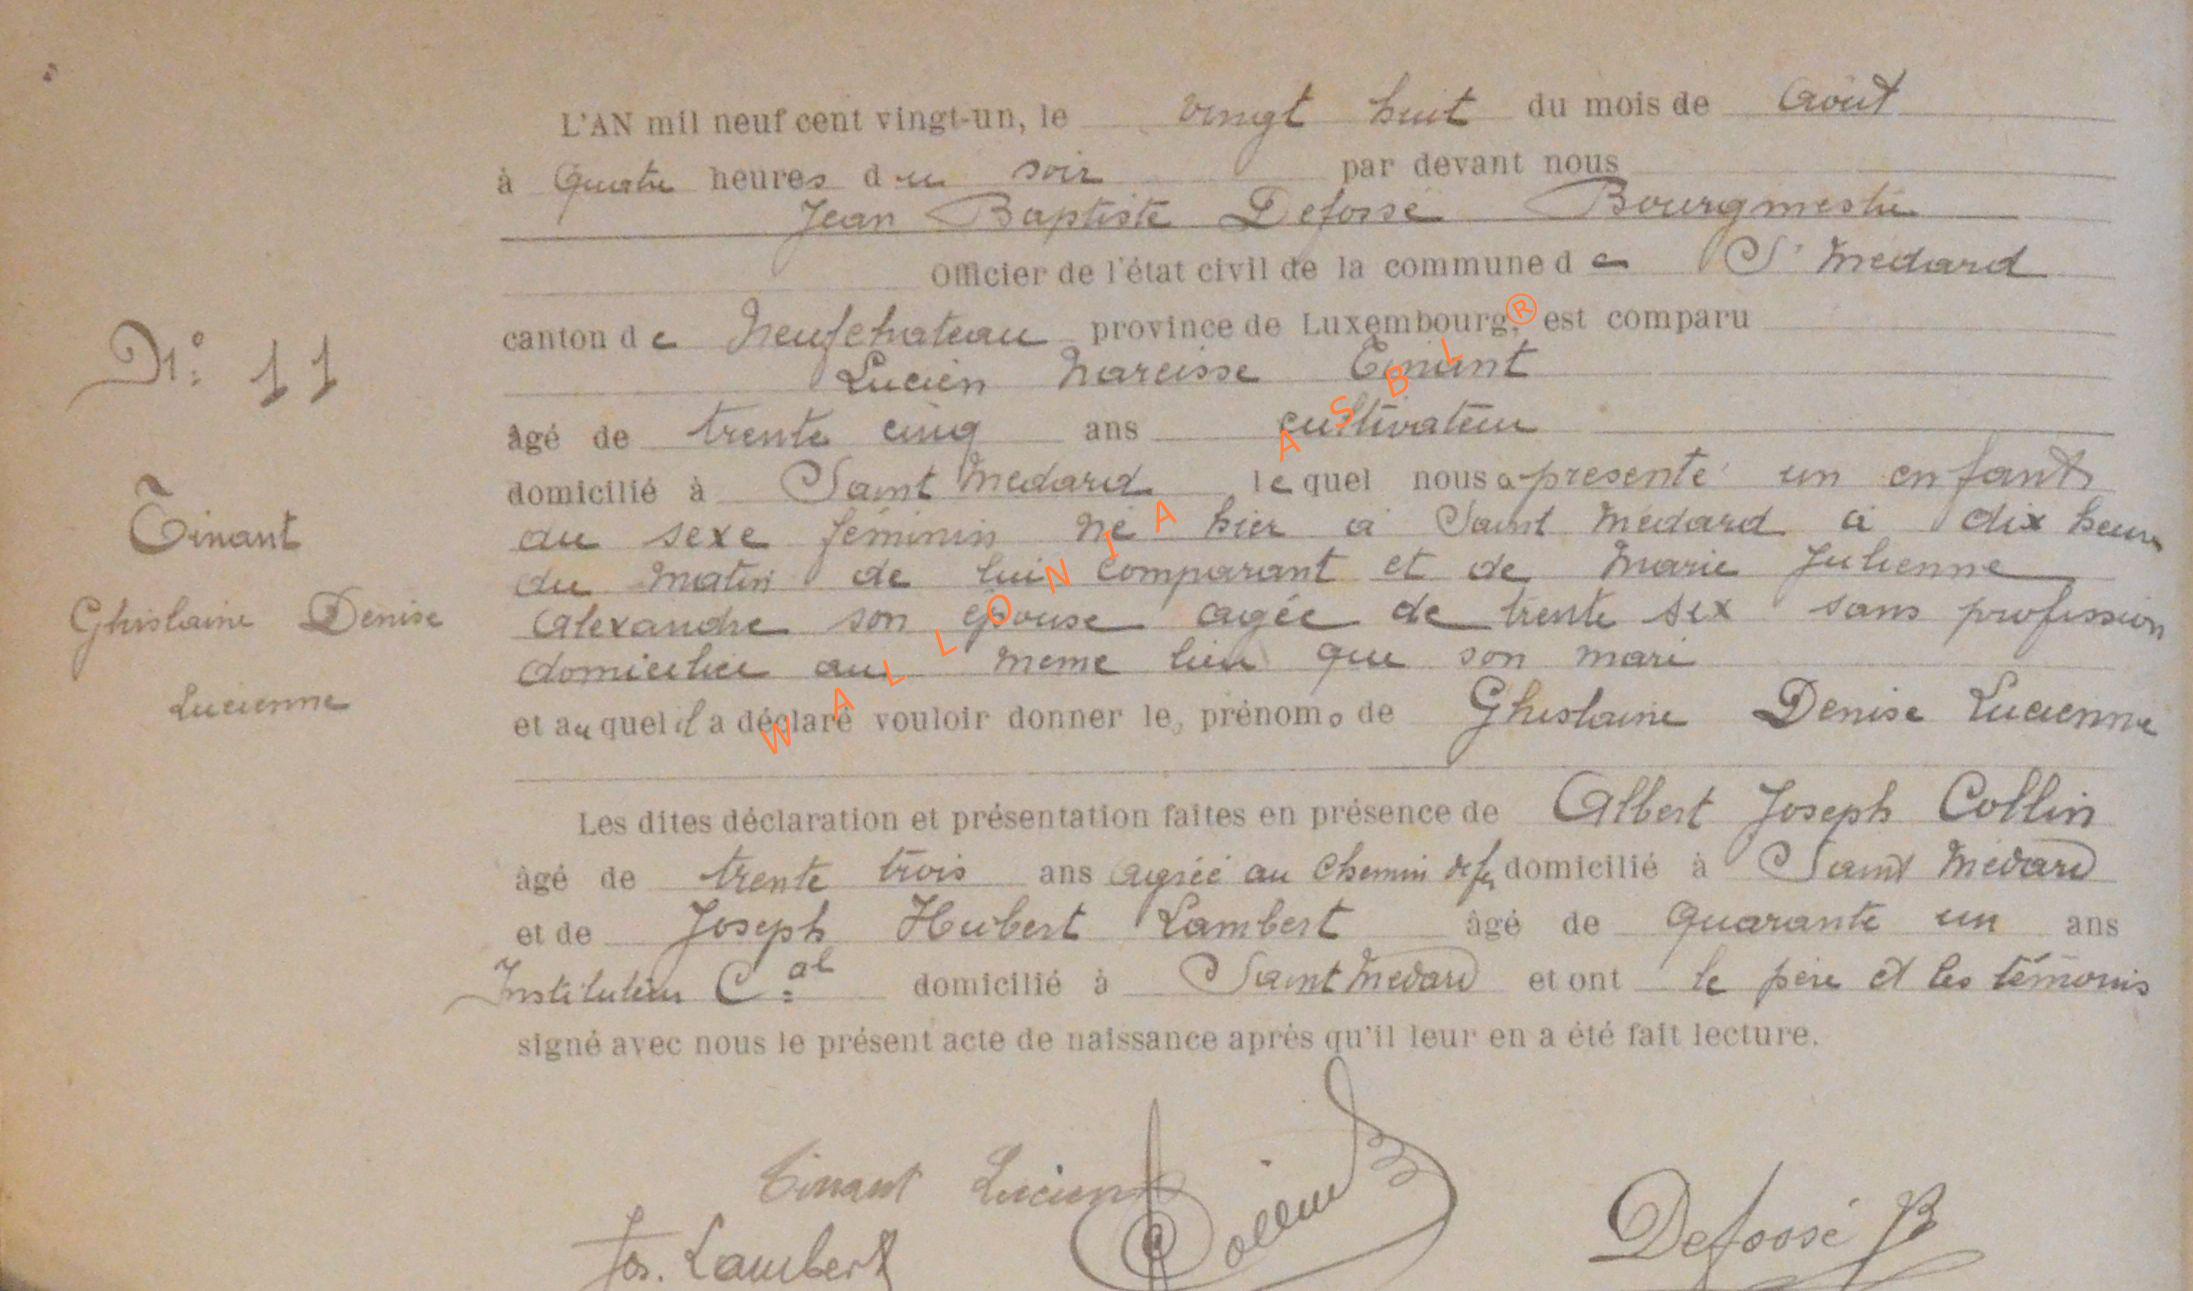 L'AN mil neuf cent vingt-un, le vingt huit du mois de Août
à quatre heures du soir par devant nous
Jean Baptiste Defossé Bourgmestre
Officier de l'état civil de la commune de St Médard
canton de Neufchateau province de Luxembourg, est comparu
Lucien Narcisse Tinant
âgé de trente cinq ans cultivateur
domicilié à Saint Médard lequel nous a présenté un enfant
du sexe féminin né hier à Saint Médard à dix heures
du matin de lui comparant et de Marie Julienne
Alexandre son épouse agée de trente six sans profession
domiciliée au même lieu que son mari
et auquel il a déclaré vouloir donner les prénoms de Ghislaine Denise Lucienne
Les dites déclaration et présentation faites en présence de Albert Joseph Collin
âgé de trente trois ans agréé au chemin de fer domicilié à Saint Médard
et de Joseph Hubert Lambert âgé de quarante un ans
Instituteur Cal domicilié à Saint Médard et ont le père et les témoins
signé avec nous le présent acte de naissance après qu'il leur en a été fait lecture.
Tinant Lucien
Jos. Lambert
Collin
Defossé JB
N° 11
Tinant
Ghislaine Denise
Lucienne
WALLONIA ASBL®